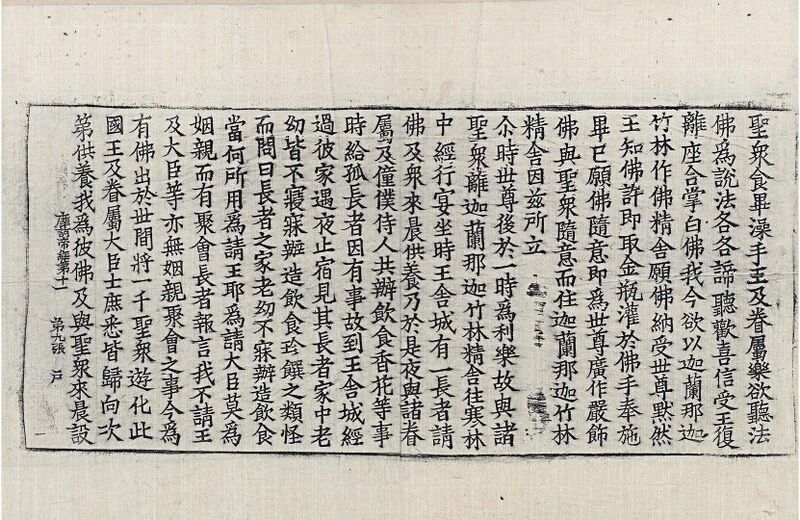 聖衆食畢澡手王及眷屬樂欲聽法
佛爲說法各各諦聽歡喜信受王復
離座合掌白佛我今欲以迦蘭那迦
竹林作佛精舍願佛納受世尊黙然
王知佛許即取金瓶灌於佛手奉施
畢已願佛隨意即爲世尊廣作嚴飾
佛與聖衆隨意而住迦蘭那迦竹林
精舍因兹所立
尒時世尊後於一時爲利樂故與諸
聖衆離迦蘭那迦竹林精舍往寒林
中經行宴坐時王舍城有一長者請
佛及衆來晨供養乃於是夜與諸眷
屬及僮僕侍人共辦飲食香花等事
時給孤長者因有事故到王舍城經
過彼家遇夜止宿見其長者家中老
幼皆不寢寐辦造飲食珍饌之類怪
而問曰長者之家老幼不寐辦造飲食
當何所用爲請王耶爲請大臣莫爲
姻親而有聚會長者報言我不請王
及大臣等亦無姻親聚會之事今爲
有佛出於世間將一千聖衆遊化此
國王及眷屬大臣士庶悉皆歸向次
第供養我爲彼佛及與聖衆來晨設
帝經第十一 第九張 戸